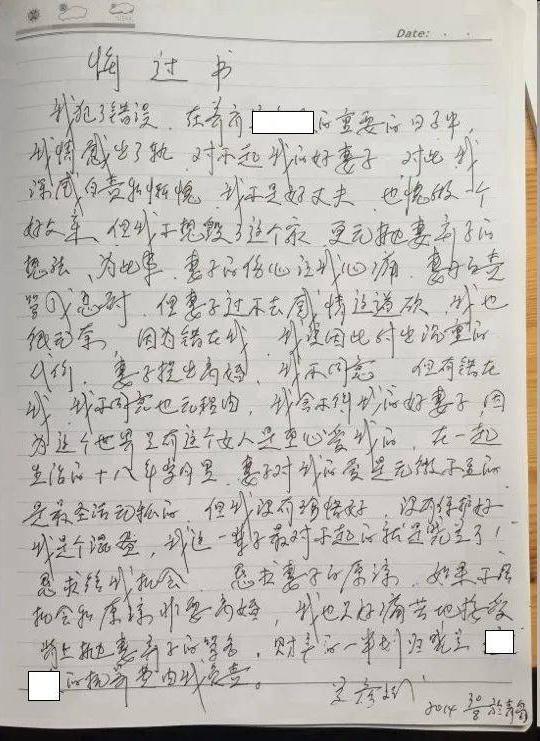 Date:
悔过书
我犯了错误，在养育的重要的日子中，
我情感出了轨，对不起我的好妻子，对此我
深感自责和惭愧，我不是好丈夫，也愧做一个
好父亲，但我不想毁了这个家，更无抛妻弃子的
想法，为此事，妻子的伤心让我心痛，妻子的责
骂我忍耐，但妻子过不去感情这道砍，我也
很无奈，因为错在我，我要因此付出沉重的
代价，妻子提出离婚，我不同意，但有错在
我，我不同意也无理由，我舍不得我的好妻子，因
为这个世界只有这个女人是真心爱我的，在一起
生活的十八年岁月里，妻子对我的爱是无微不至的
是最圣洁无私的，但我没有珍惜好，没有保护好
我是个混蛋，我这一辈子最对不起的就是晓兰了！
恳求给我机会，恳求妻子的原谅，如果不给
机会和原谅非要离婚，我也只好痛苦地接受
背上抛妻弃子的骂名，财产的一半划归晓兰
的抚养费由我负责。
2014 30/8 於青岛